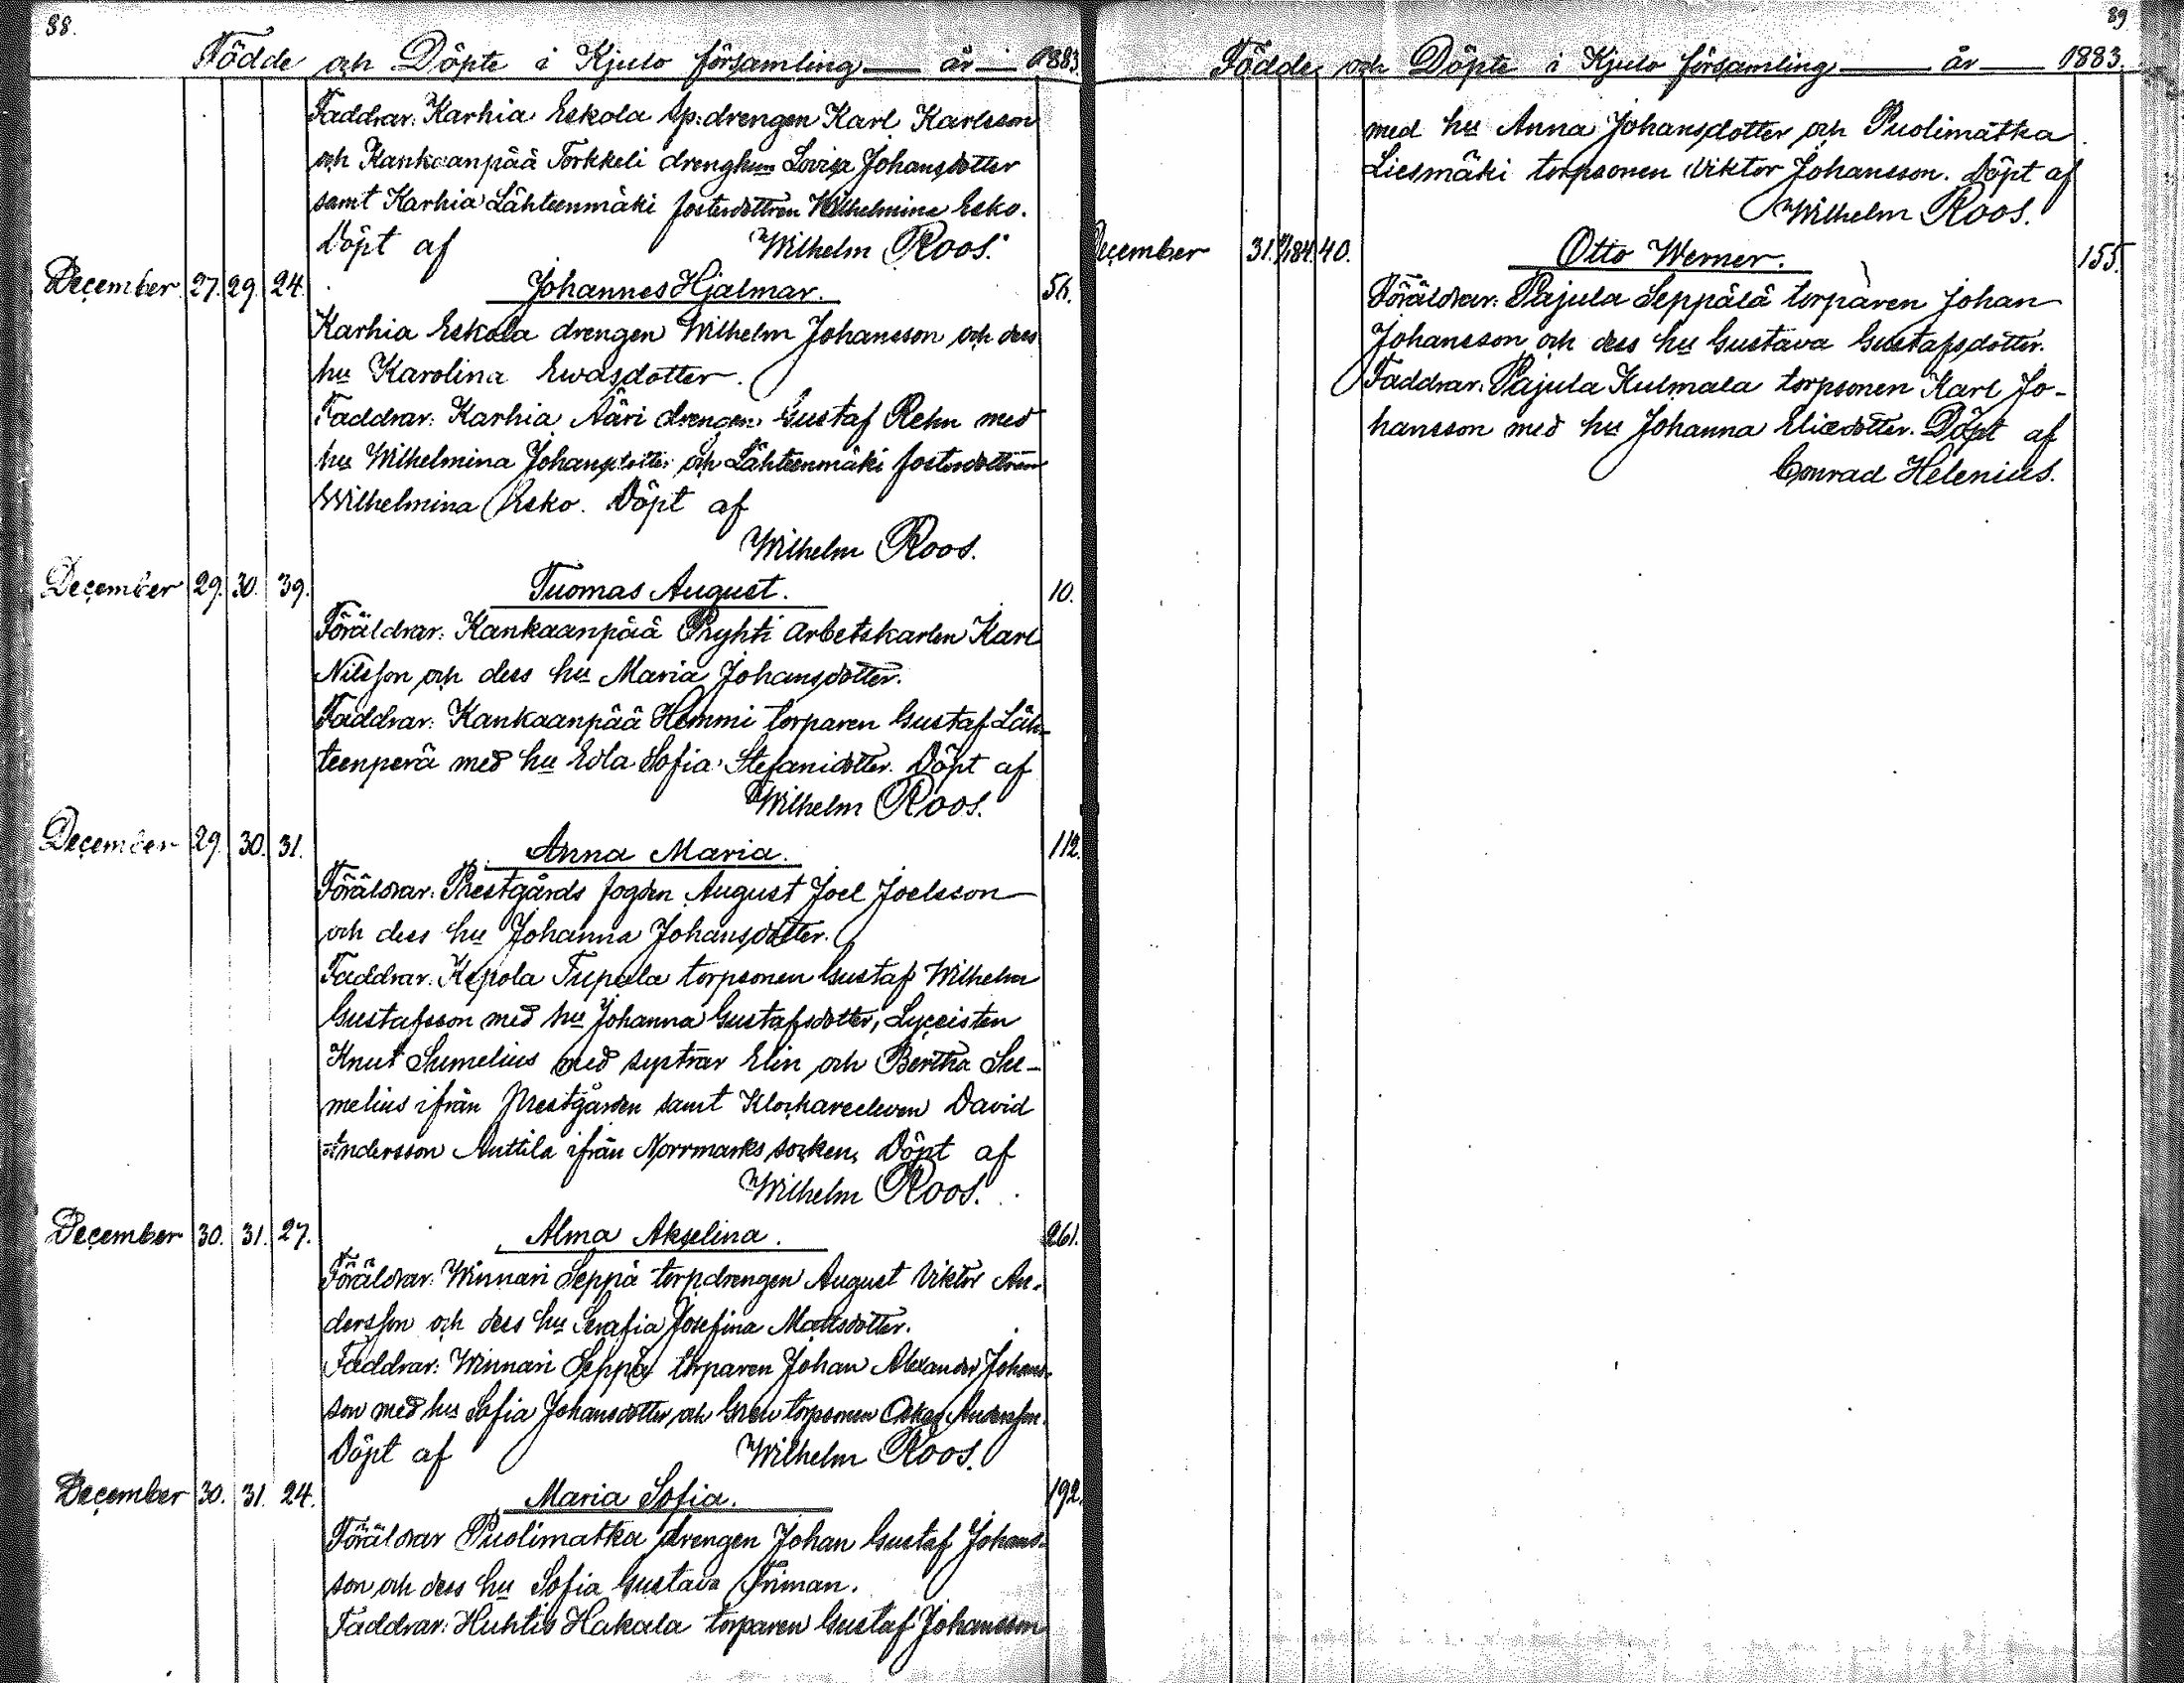 88.
Födde och Döpte i Kjulo församling år 1883.
Faddrar: Karhia Eskola sp:drengen Karl Karlsson
och Kankaanpää Torkkeli drenghun Lovisa Johansdotter
samt Karhia Lähteenmäki fosterdottren Wilhelmina Esko.
Döpt af Wilhelm Roos.
December 27. 29. 24. Johannes Hjalmar. 56.
Karhia Eskola drengen Wilhelm Johansson och dess
hu Karolina Ewasdotter.
Faddrar: Karhia Ääri drengen Gustaf Rehn med
hu Wilhelmina Johansdotter och Lähteenmäki fosterdottren
Wilhelmina Esko. Döpt af
Wilhelm Roos.
December 29. 30. 39. Tuomas August. 10.
Föräldrar: Kankaanpää Pryhti arbetskarlen Karl
Nilsson och dess hu Maria Johansdotter.
Faddrar: Kankaanpää Hemmi torparen Gustaf Läh-
teenperä med hu Edla Sofia Stefanidotter. Döpt af
Wilhelm Roos.
December 29. 30. 31. Anna Maria. 112.
Föräldrar: Prestgårds fogden August Joel Joelsson
och dess hu Johanna Johansdotter.
Faddrar: Kepola Tupala torpsonen Gustaf Wilhelm
Gustafsson med hu Johanna Gustafsdotter, Lyceisten
Knut Sumelius med systrar Elin och Bertha Su-
melius ifrån Prestgården samt Klockareeleven David
Andersson Anttila ifrån Norrmarks socken. Döpt af
Wilhelm Roos.
December 30. 31. 27. Alma Akselina. 261.
Föräldrar: Winnari Seppä torpdrengen August Viktor An-
dersson och dess hu Serafia Josefina Mattsdotter.
Faddrar: Winnari Seppä torparen Johan Alexander Johans-
son med hu Sofia Johansdotter och torpsonen Oskar Andersson.
Döpt af Wilhelm Roos.
December 30. 31. 24. Maria Sofia. 192.
Föräldrar Puolimatka drengen Johan Gustaf Johans-
son och dess hu Sofia Gustava Friman.
Faddrar: Huhtis Hakala torparen Gustaf Johansson
89
Födde och Döpte i Kjulo församling år 1883.
med hu Anna Johansdotter och Puolimatka
Liesmäki torpsonen Viktor Johansson. Döpt af
Wilhelm Roos.
December 31. 1/184. 40. Otto Werner. 155.
Föräldrar: Pajula Seppälä torparen Johan
Johansson och dess hu Gustava Gustafsdotter.
Faddrar: Pajula Kulmala torpsonen Karl Jo-
hansson med hu Johanna Eliedotter. Döpt af
Conrad Helenius.